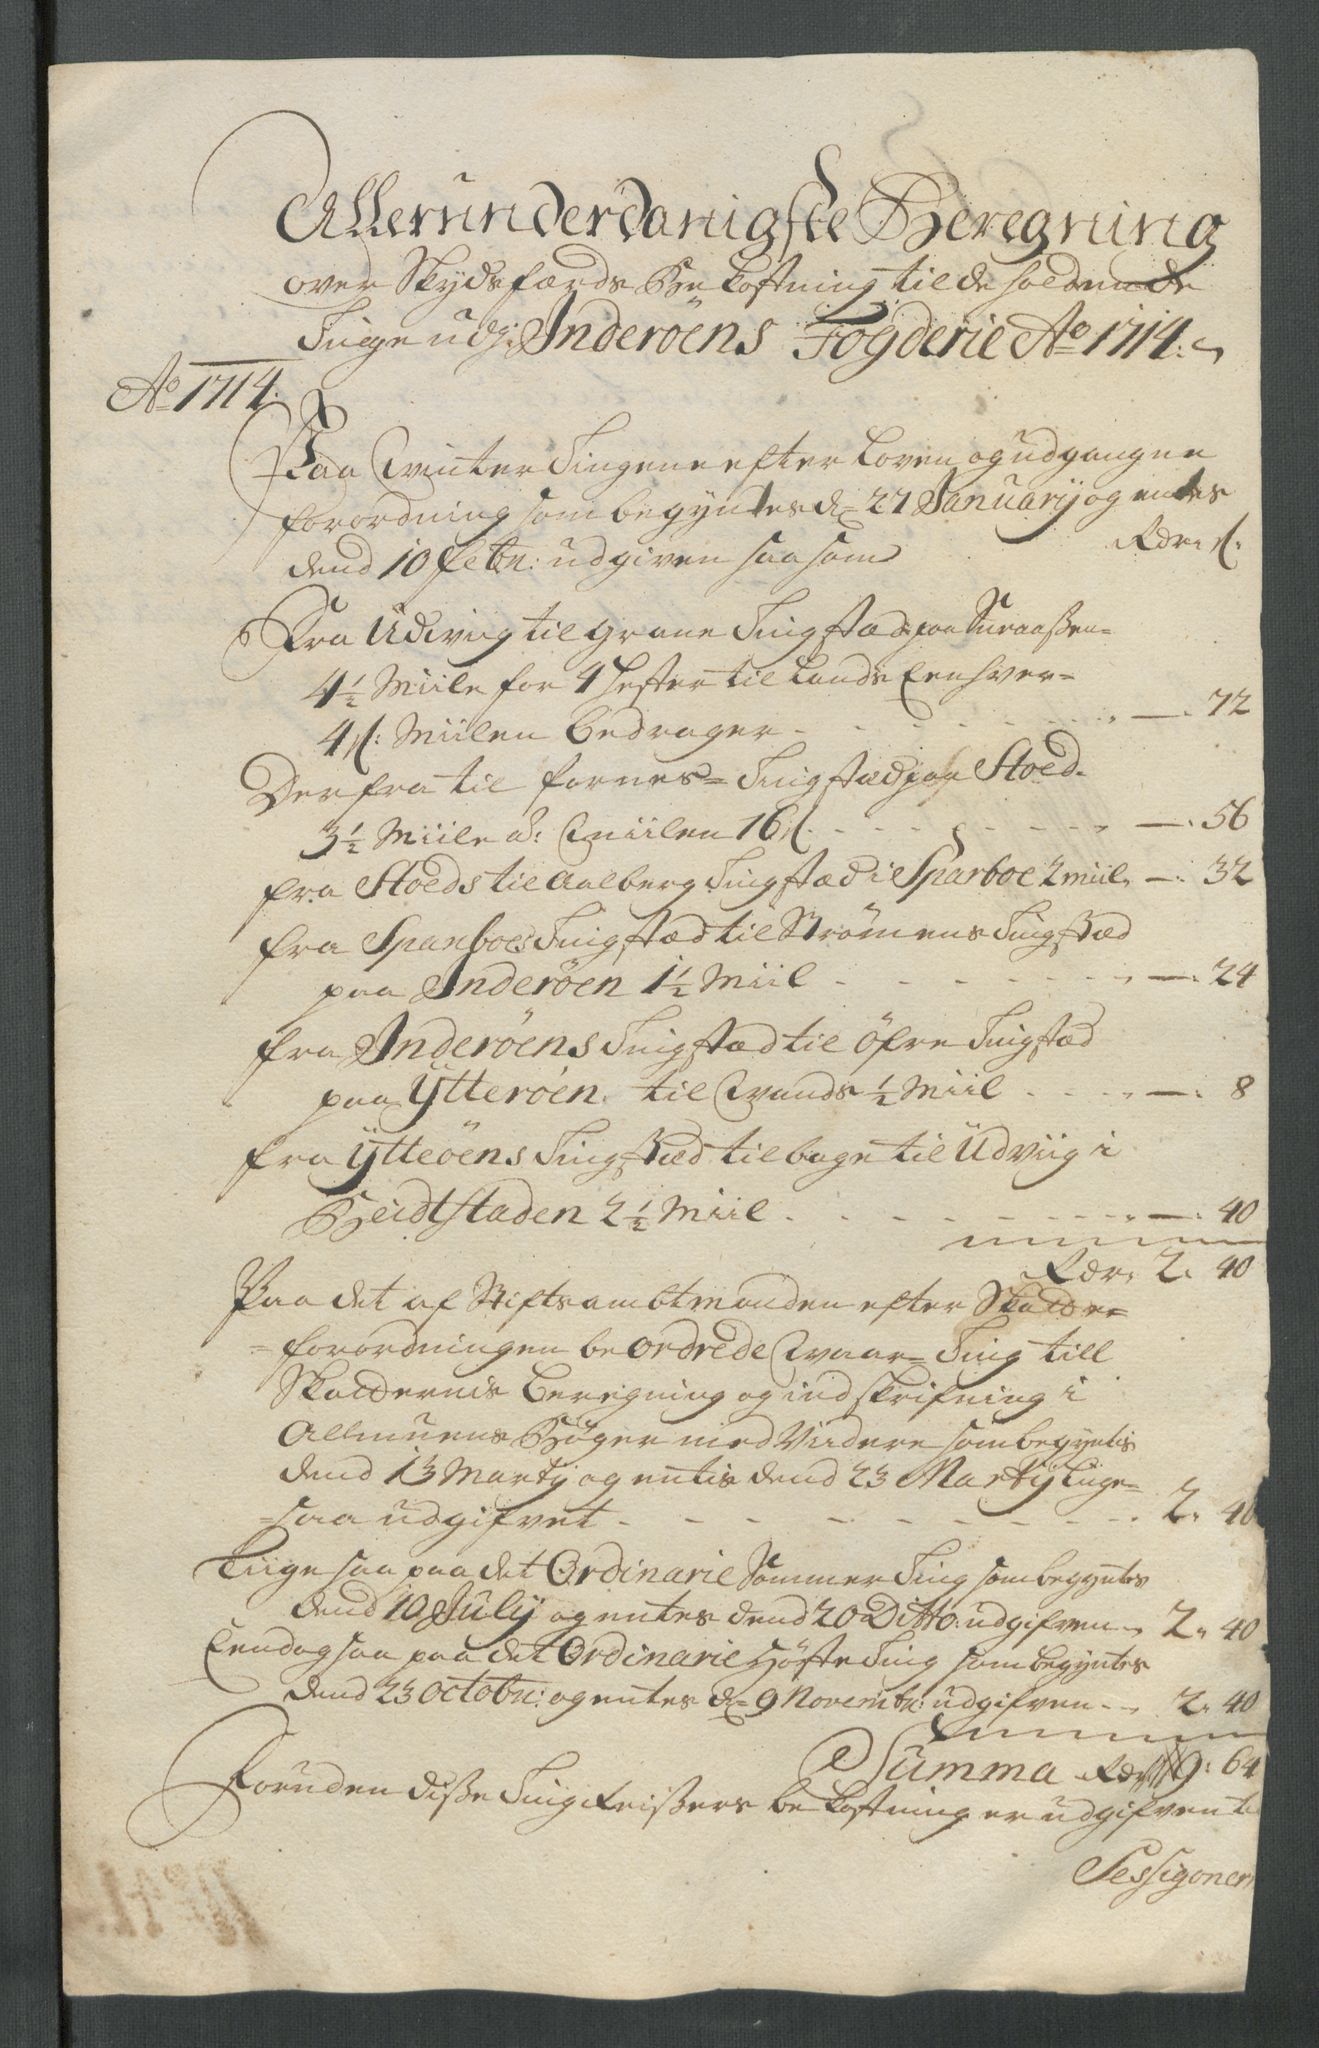 Allerunderdanigste Beregning
over Skydsfærds Bekostning til de holdende
Tinge udj Inderöens Fögderie Ao 1714:
Ao 1714.
Paa Vinter Tingene efter Loven og udgangne
forordning som begyntes d= 27 Januarij og entes
dend 10 Febr: udgiven saasom Rdr: s:
Fra Udviig til Grane Tingstæd paa Snaasen=
4½ Miile for 4 Hester til Lands Eenhver=
4 s: Miilen bedrager - - - - - 72
Der fra til Fornes= Tingstæd paa Stoed.
3½ Miile a: Miilen 16 s - - - - - 56
fra Stoeds til Aalberg Tingstæd i Sparboe 2 miil - 32
fra Sparboes Tingstæd til Strömens Tingstæd
paa Inderöen 1½ Miil - - - - - 24
fra Inderöens Tingstæd til Öfre Tingstæd
paa Ytteröen til Vands ½ Miil - - - - 8
fra Ytteöens Tingstæd tilbage til Udviig i
Beidtstaden 2½ Miil - - - - - 40
Rdr. 2. 40
Paa det af Stiftsambtmanden efter Skatte=
=forordningen beordrede Vaar= Ting till
Skatternis beregning og indskrifning i
Allmuens Böger med Viidere som begyntis
dend 13 Marty og entis dend 23 Martij liige=
=saa udgifvet - - - - - 2. 40
Liigesaa paa det Ordinarie Sommer Ting som begyntes
dend 10 July og entes dend 20 Ditto: udgifven - 2. 40
Eendogsaa paa det Ordinarie Höste Ting som begyntes
dend 23 Octobr: og entes d= 9 Novembr: udgifven - 2. 40
Summa Rdr 9: 64
Foruden disse Ting Reissers bekostning er udgifven t
Sessigoner